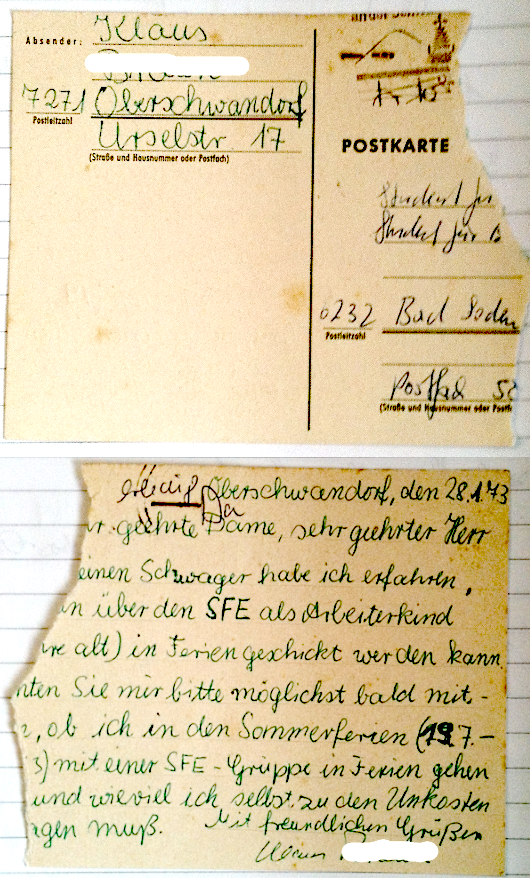 Absender: Klaus
7271 Oberschwandorf
Postleitzahl
Urselstr. 17
(Straße und Hausnummer oder Postfach)
POSTKARTE
Student für
Student für
6232 Bad Soden
Postleitzahl
Postfach
(Straße und Hausnummer oder Postf
Oberschwandorf, den 28.1.73
geehrte Dame, sehr geehrter Herr
einen Schwager habe ich erfahren,
n über den SFE als Arbeiterkind
re alt) in Ferien geschickt werden kann
nten Sie mir bitte möglichst bald mit-
, ob ich in den Sommerferien (19.7.-
3) mit einer SFE-Gruppe in Ferien gehen
und wieviel ich selbst zu den Unkosten
agen muß. Mit freundlichen Grüßen